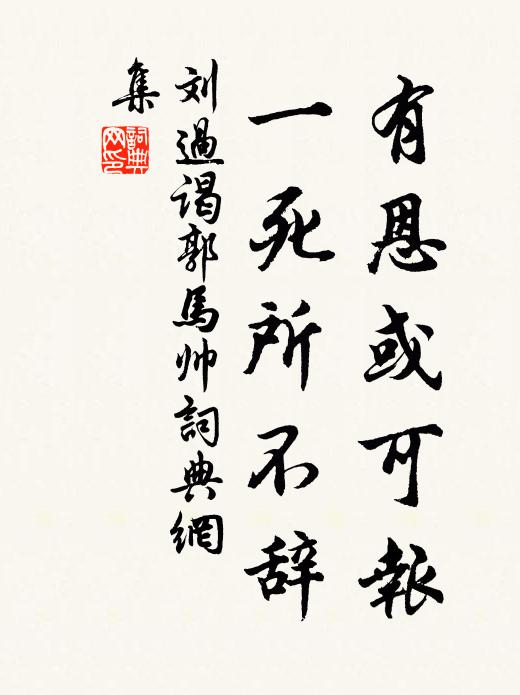 有恩或可報
一死所不辞
刘過谒郭馬帅詞典網
集
詞典
网印